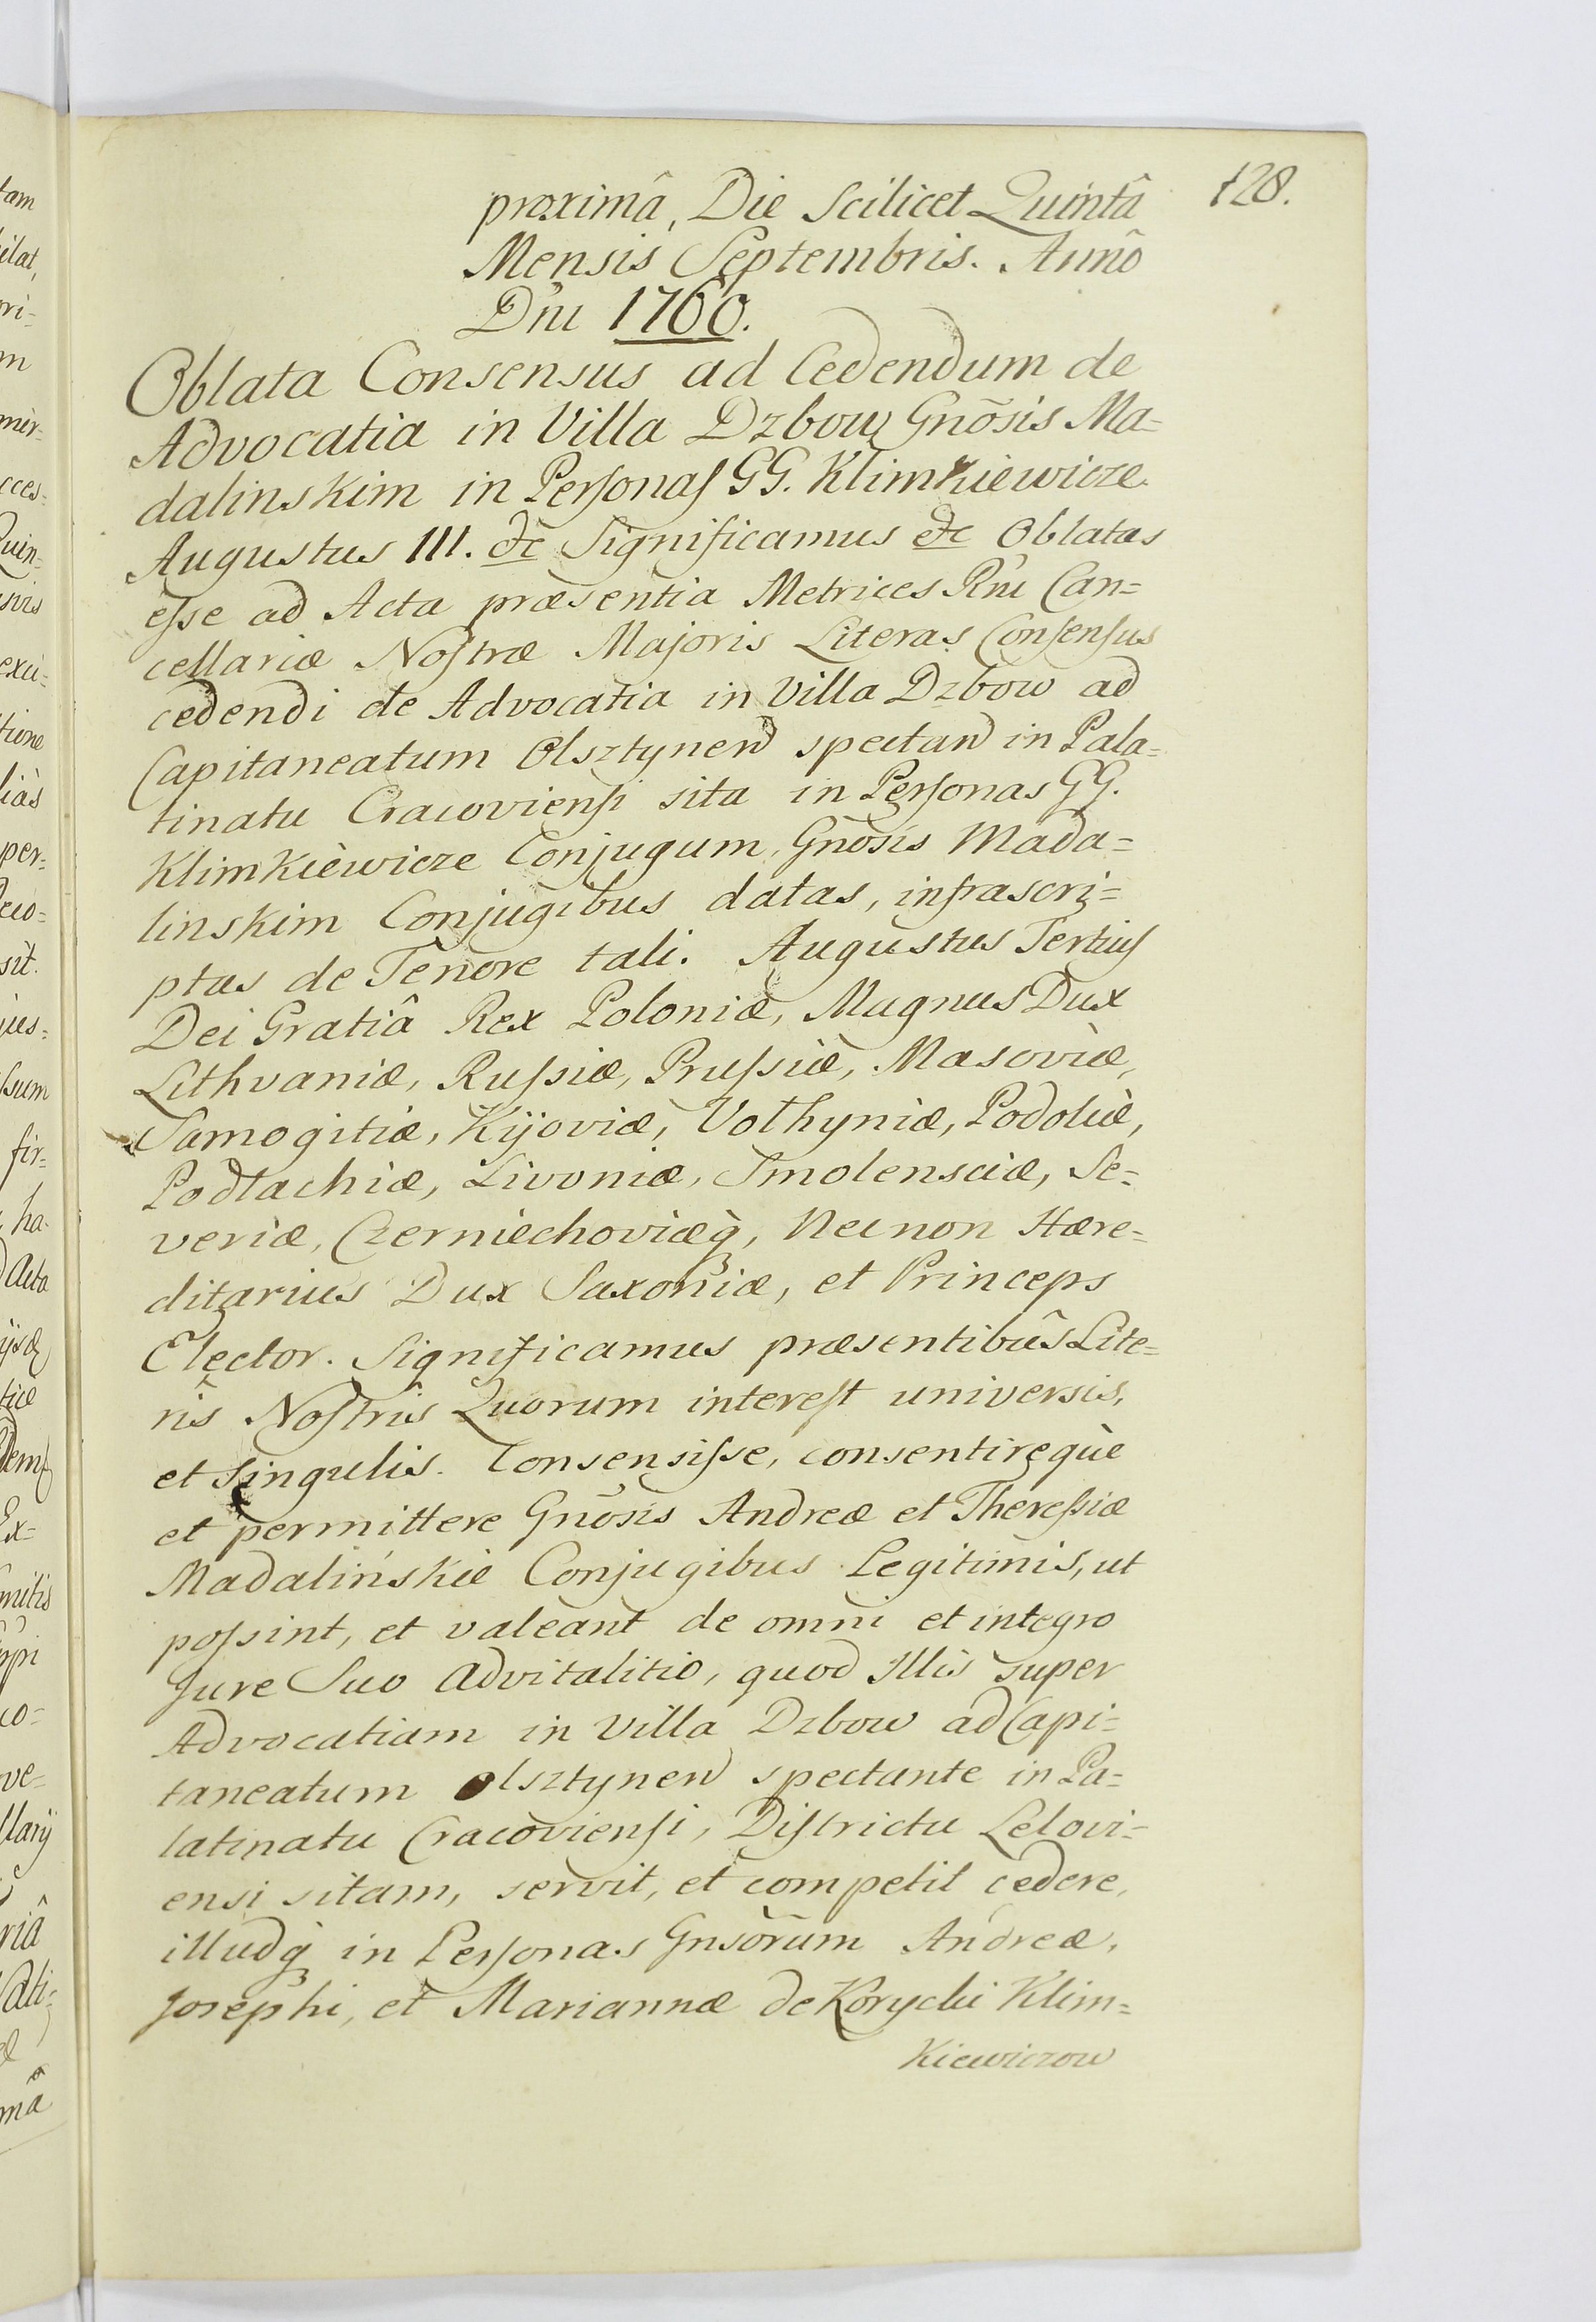 128.
proximâ, Die Scilicet Quintâ
Mensis Septembris. Annô
Dni 1760.
Oblata Consensus ad Cedendum de
Advocatia in Villa Dzbow Gnõsis Ma=
dalinskim in Personas GG. Klimkiewicze
Augustus III. etc Significamus etc Oblatas
esse ad Acta præsentia Metrices Rni Can=
cellariæ Nostræ Majoris Literas Consensus
cedendi de Advocatia in Villa Dzbow ad
Capitaneatum Olsztynen spectan in Pala=
tinatu Cracoviensi sita in Personas GG.
Klimkiewicze Conjugum, Gnõsis Mada=
linskim Conjugibus datas, infrascri=
ptas de Tenore tali. Augustus Tertius
Dei Gratiâ Rex Poloniæ, Magnus Dux
Lithvaniæ, Russiæ, Prussiæ, Masoviæ,
Samogitiæ, Kijoviæ, Volhyniæ, Podoliæ,
Podlachiæ, Livoniæ, Smolensciæ, Se=
veriæ, Czerniechoviæq, Necnon Hære=
ditarius Dux Saxoniæ, et Princeps
Elector. Significamus præsentibûs Lite=
rîs Nostrîs Quorum interest universis,
et singulis. Consensisse, consentireque
et permittere Gnõsis Andreæ et Theressiæ
Madalińskie Conjugibus Legitimis, ut
possint, et valeant de omni et integro
Jure Suo advitalitio, quod Illis super
Advocatiam in Villa Dzbow ad Capi=
taneatum Olsztynen spectante in Pa=
latinatu Cracoviensi, Districtu Lelovi=
ensi sitam, servit, et competit cedere,
illudq in Personas Gnsõrum Andreæ,
Josephi, et Mariannæ de Korycki Klim=
kiewiczow